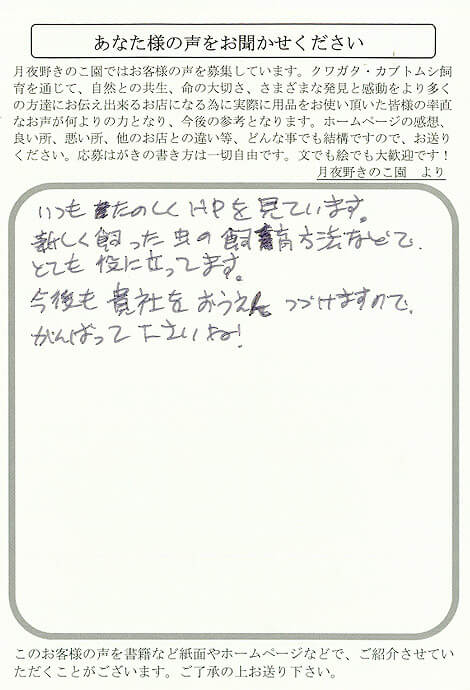 あなた様の声をお聞かせください
月夜野きのこ園ではお客様の声を募集しています。クワガタ・カブトムシ飼
育を通じて、自然との共生、命の大切さ、さまざまな発見と感動をより多く
の方達にお伝え出来るお店になる為に実際に用品をお使い頂いた皆様の率直
なお声が何よりの力となり、今後の参考となります。ホームページの感想、
良い所、悪い所、他のお店との違い等、どんな事でも結構ですので、お送り
ください。応募はがきの書き方は一切自由です。文でも絵でも大歓迎です！
月夜野きのこ園　より
いつもたのしくHPを見ています。
新しく飼った虫の飼育方法などで、
とても役に立ってます。
今後も貴社をおうえんつづけますので、
がんばって下さいね！
このお客様の声を書籍など紙面やホームページなどで、ご紹介させてい
ただくことがございます。ご了承の上お送り下さい。